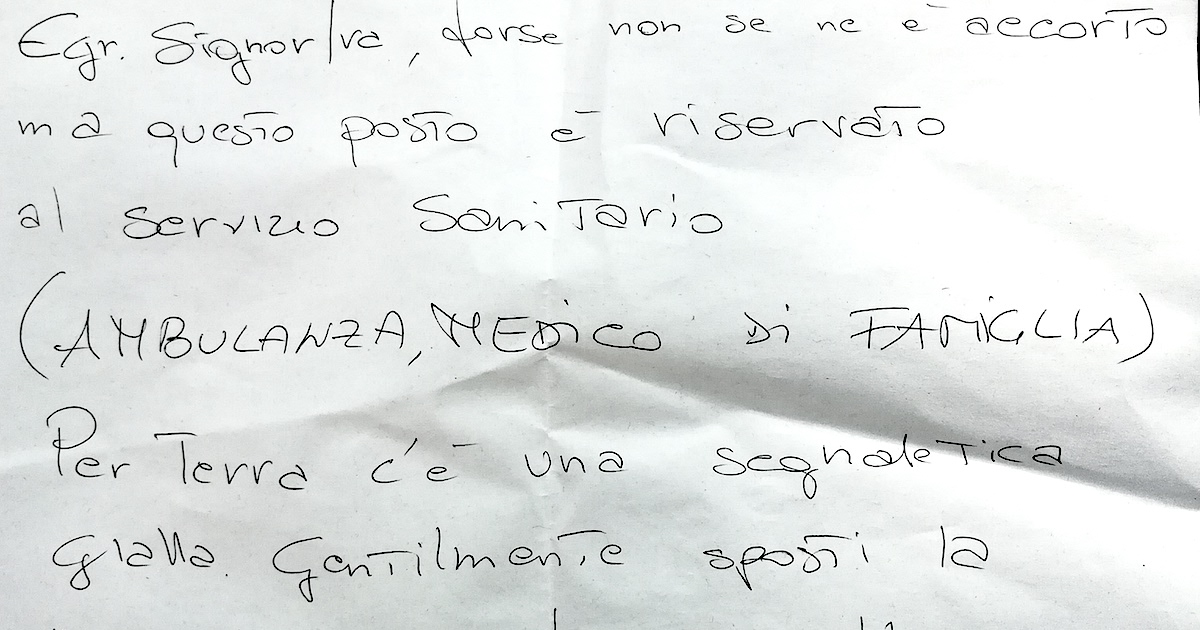 Egr. Signor/ra, forse non se ne è accorto
ma questo posto è riservato
al servizio Sanitario
(AMBULANZA, MEDICO Di FAMiGLIA)
Per Terra c'è una segnaletica
gialla. Gentilmente sposti la